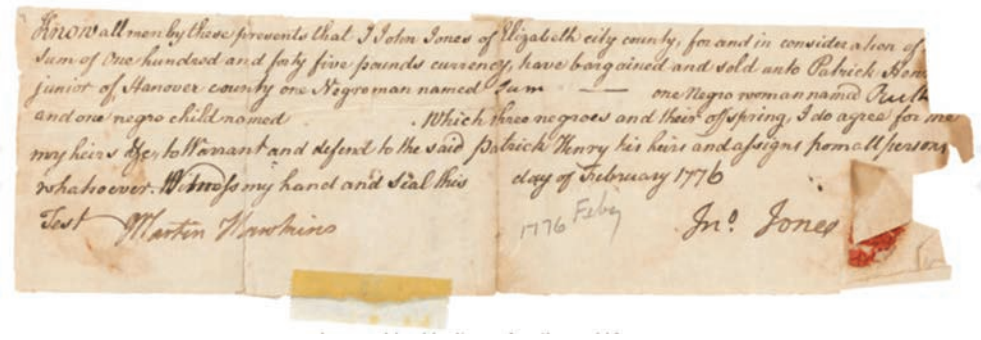 Know all men by these presents that I John Jones of Elizabeth city county, for and in consideration of
Sum of One hundred and forty five pounds currency, have bargained and sold unto Patrick Hen
junior of Hanover county one Negro man named one Negro woman named Ruth
and one negro child named . Which three negroes and their offspring, I do agree for me
my heirs &c, to Warrant and defend to the said Patrick Henry his heirs and assigns from all persons
whatsoever. Witness my hand and Seal this day of February 1776
Test Martin Hawkins
1776 Feby
Jno. Jones